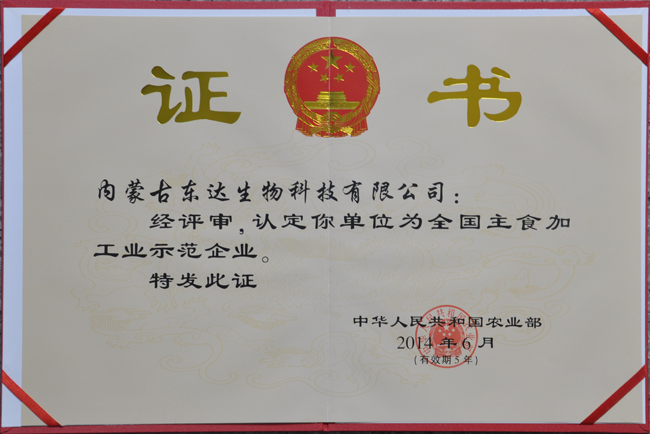 证书
内蒙古东达生物科技有限公司：
经评审，认定你单位为全国主食加
工业示范企业。
特发此证
中华人民共和国农业部
2014年6月
（有效期5年）